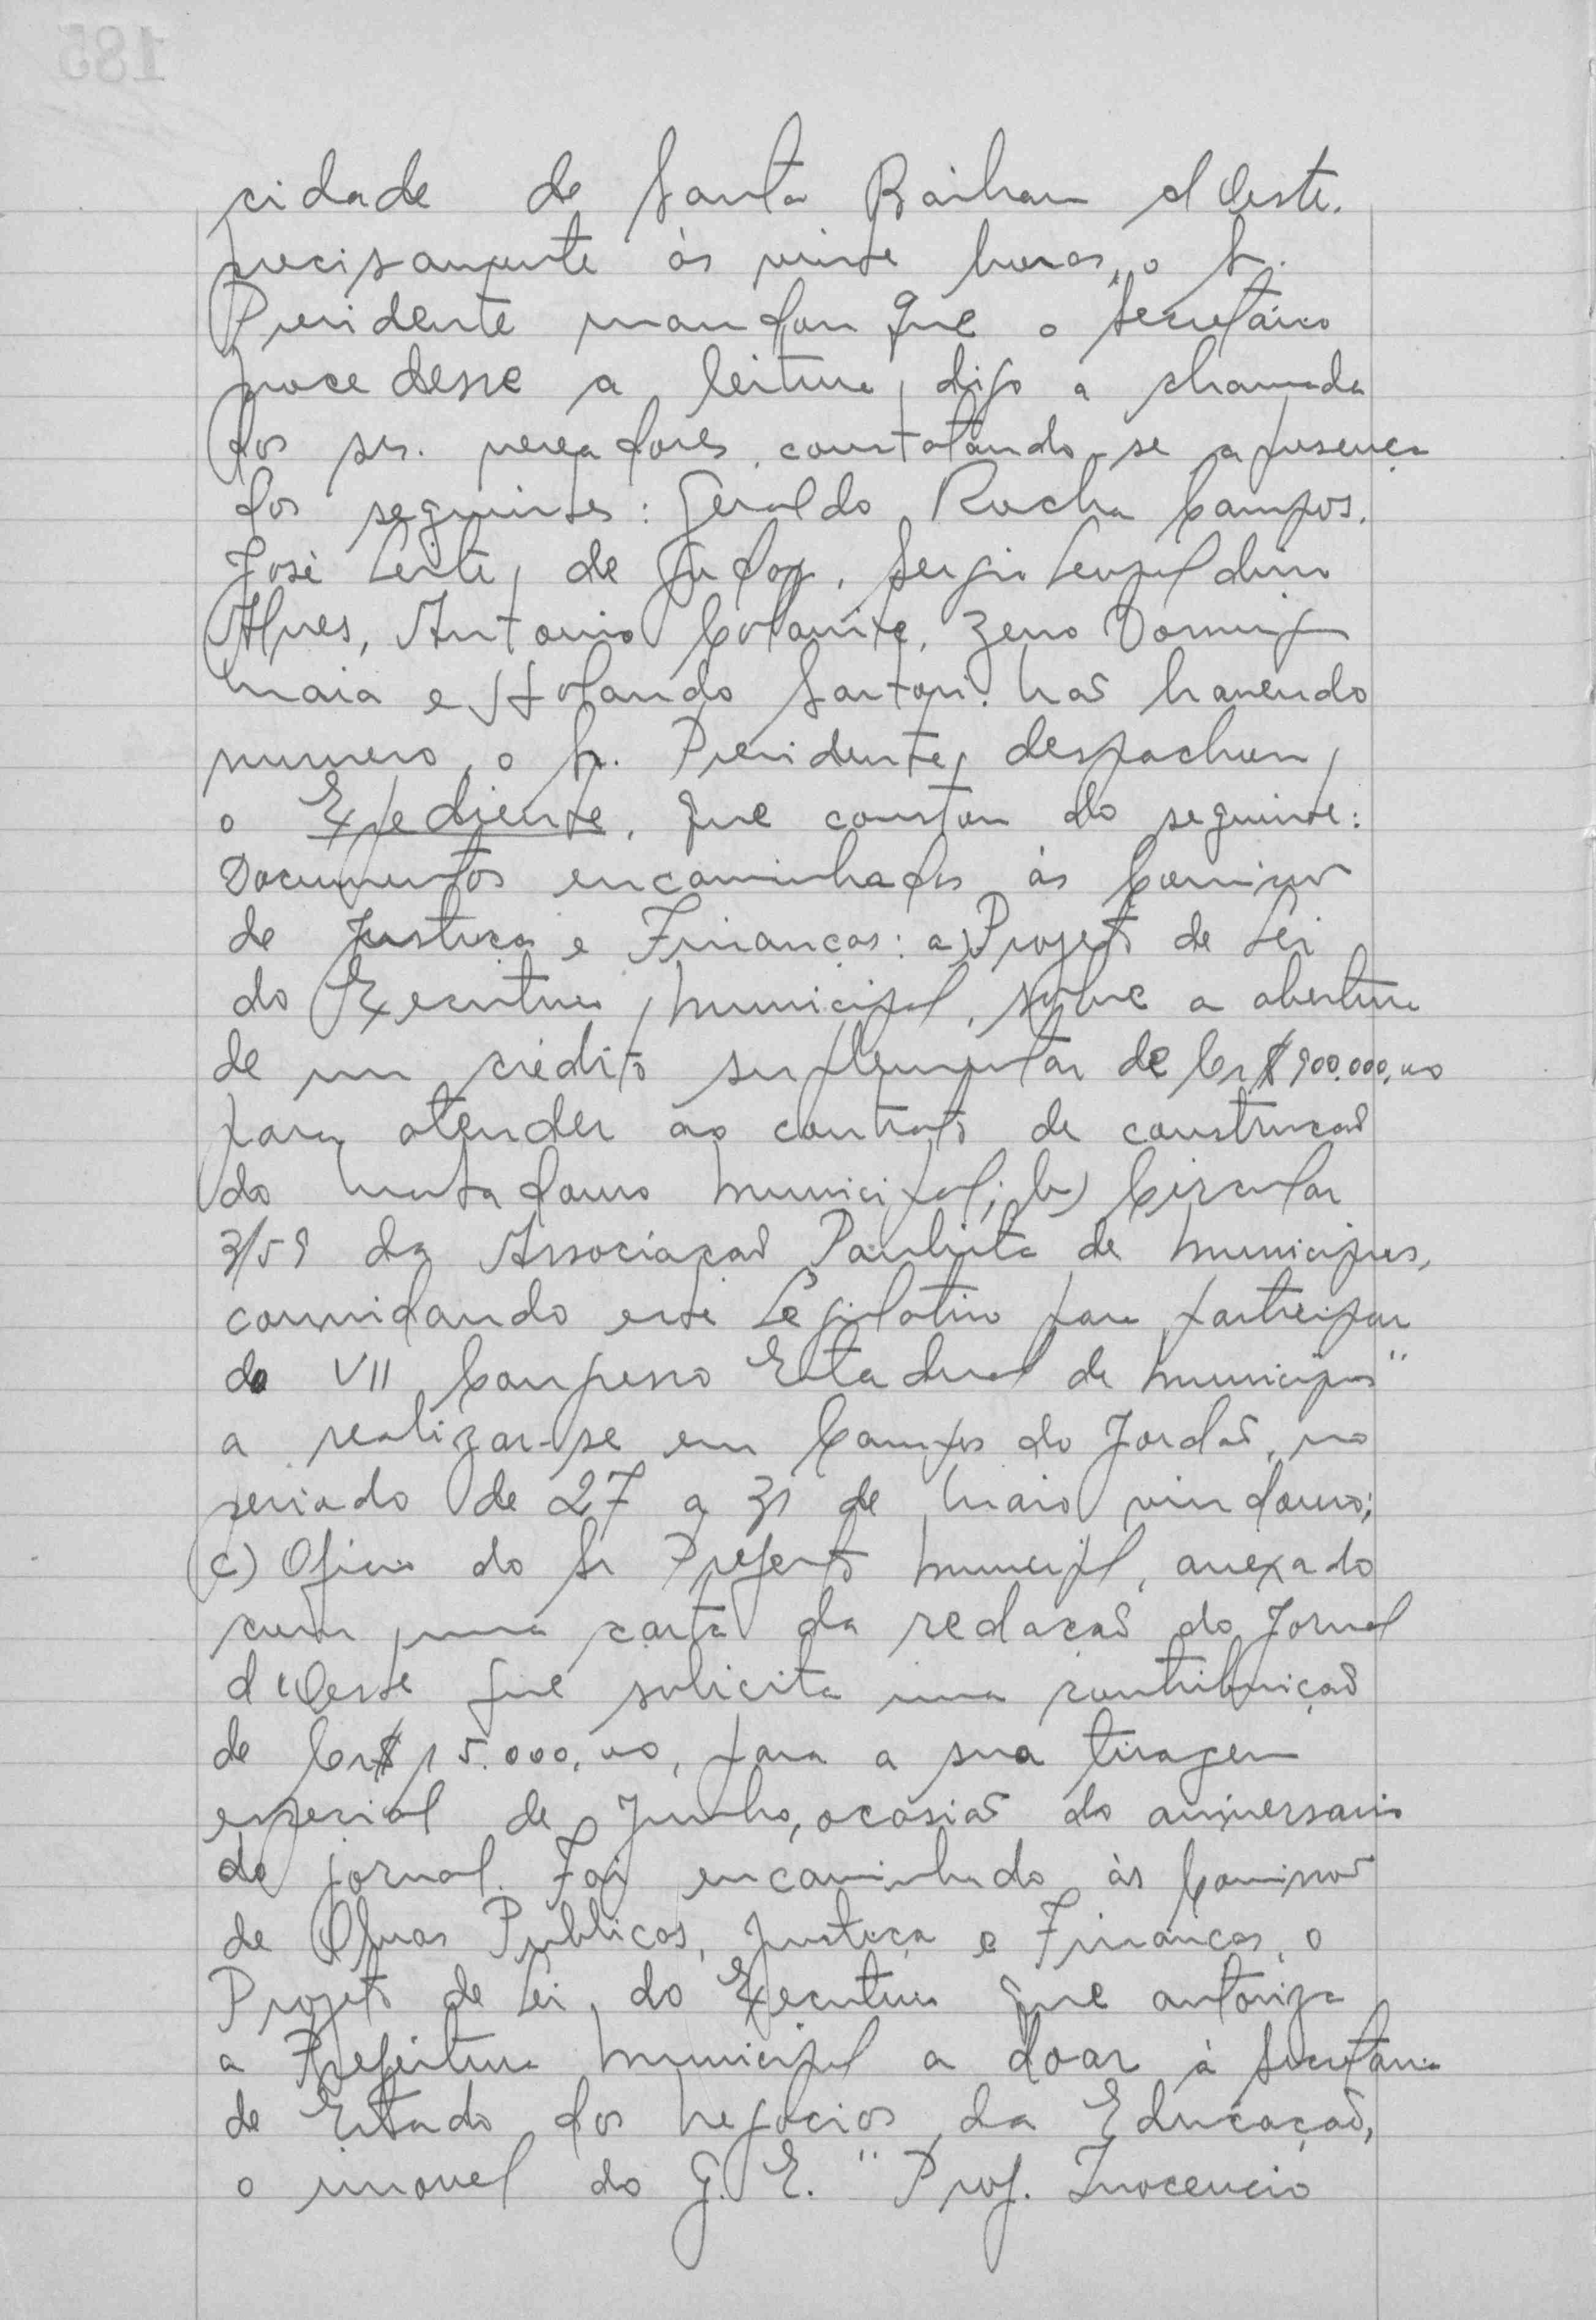 185
cidade de Santa Bárbara d Oeste.
precisamente às vinte horas, o Sr.
Presidente mandou que o Secretário
procedesse a leitura, digo a chamada
dos srs. vereadores, constatando-se a presença
dos seguintes: Geraldo Rocha Campos,
José Leite, de Godoy, Sergio Leopoldino
Alves, Antonio Colanite, Zeno Domingos
Maia e Holando Sartori. Não havendo
numero, o Sr. Presidente, despachou,
o Expediente, que constou do seguinte:
Documentos encaminhados às Comissão
de Justiça e Finanças: a) Projeto de Lei
do Executivo Municipal, sobre a abertura
de um crédito suplementar de Cr$ 900.000,00
para atender ao contrato de construcão
do matadouro Municipal; b) Circular
3/59 da Associacão Paulista de Municipios,
convidando este Legislativo para participar
do VII Congresso Estadual de Municipios"
a realizar-se em Campos do Jordão, no
periodo de 27 a 31 de Maio vindouro;
c) Oficio do Sr Prefeito Municipal, anexado
com uma carta da redacão do Jornal
d'Oeste que solicita uma contribuição
de Cr$ 15.000,00, para a sua tiragem
especial de Junho, ocasião do aniversario
do jornal. Foi encaminhado às Comissão
de Obras Publicas, Justiça e Finanças, o
Projeto de Lei, do Executivo que autoriza
a Prefeitura Municipal a doar à Secretaria
de Estado dos Negocios da Educação,
o imovel do G. E. "Prof. Inocencio